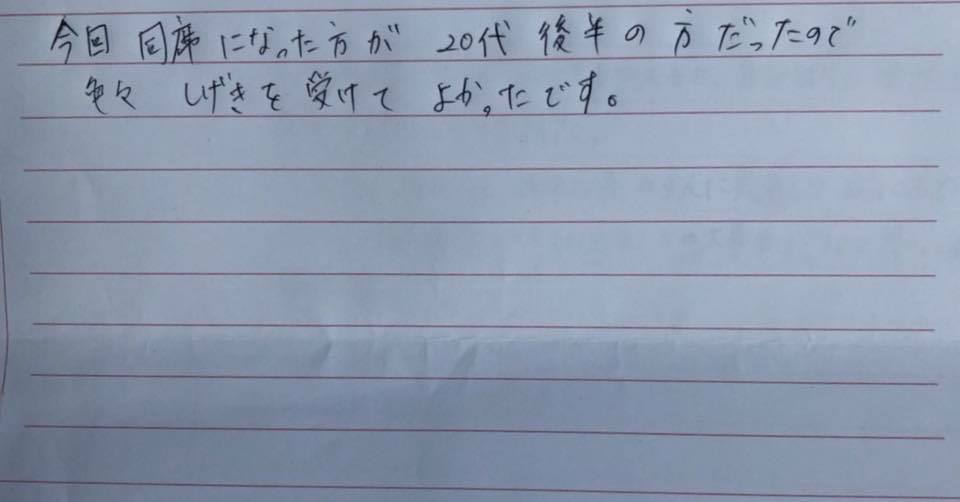 今回 同席になった方が 20代 後半の方だったので
色々 しげきを受けて よかったです。